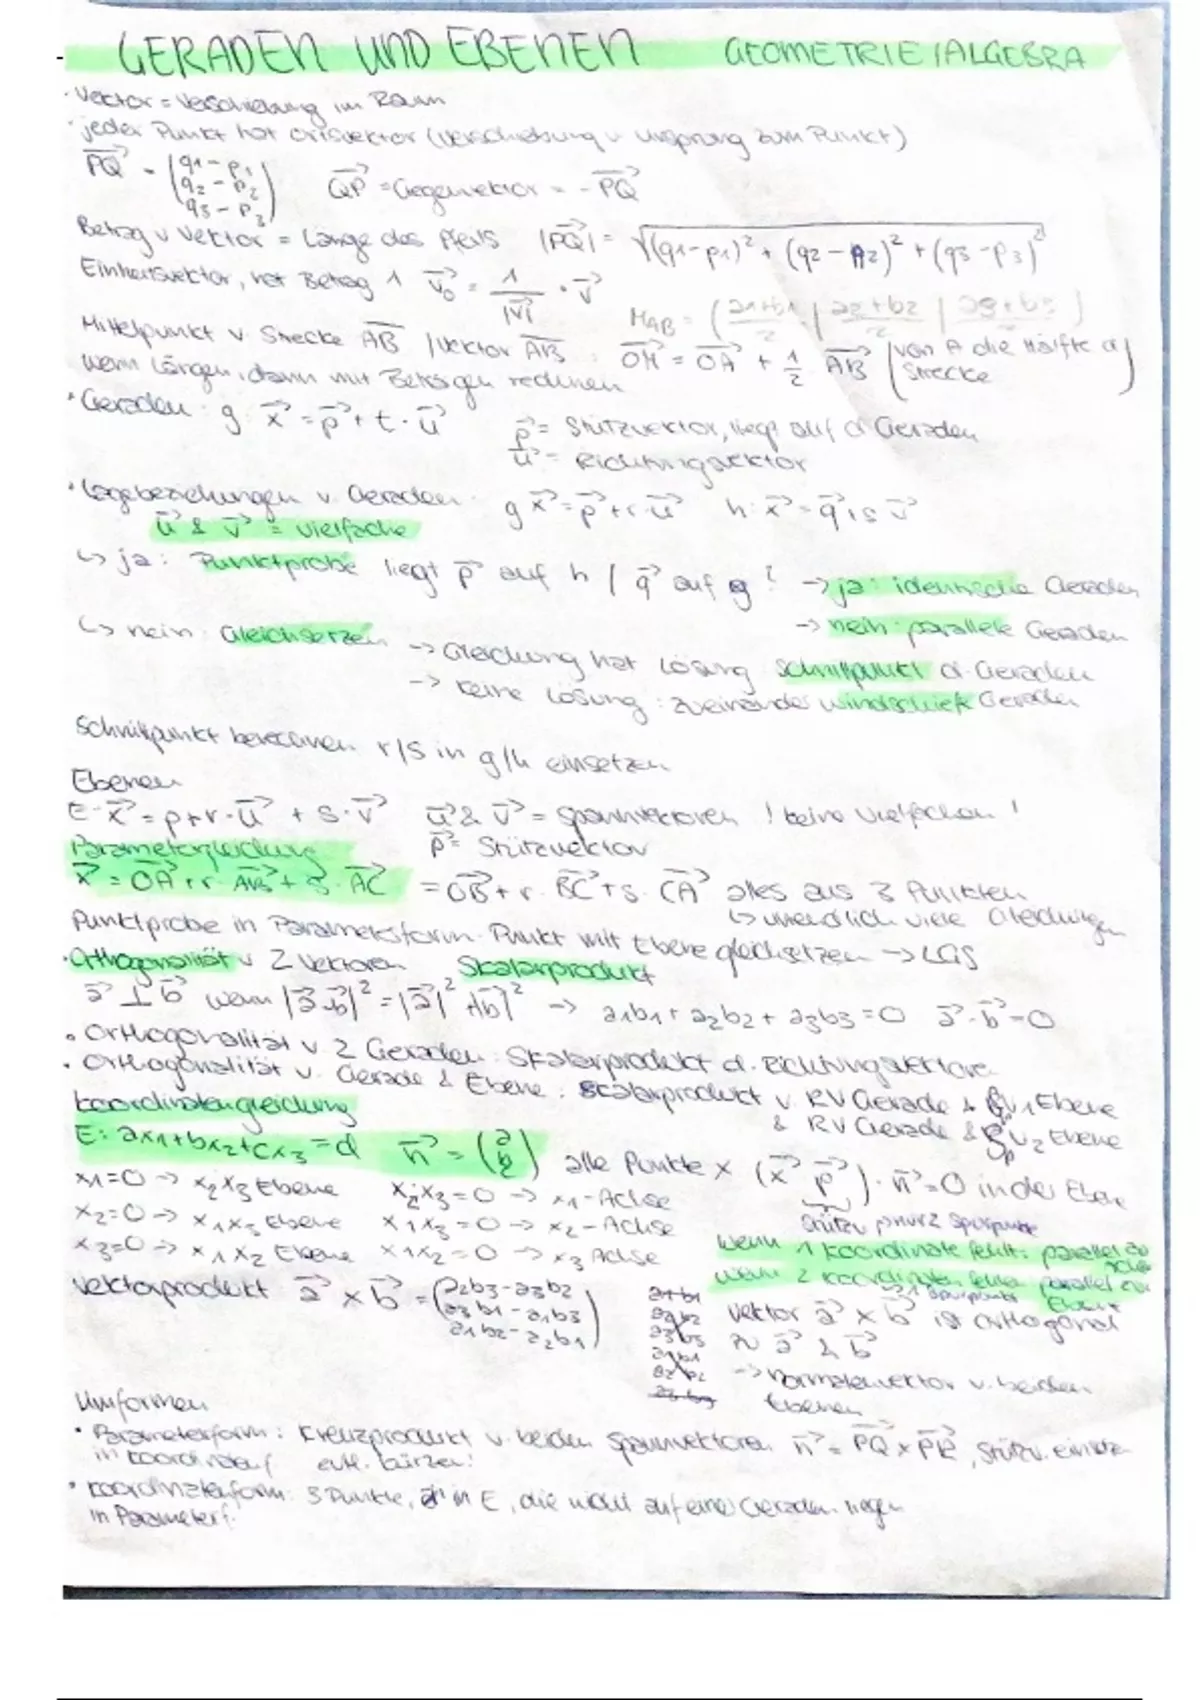 GERADEN UND EBENEN GEOMETRIE / ALGEBRA
· Vektor = Verschiebung im Raum
· jeder Punkt hat Ortsvektor (Verschiebung v Ursprung zum Punkt)
PQ⃗ = (q1-p1 q2-p2 q3-p3) QP⃗ = Gegenvektor = -PQ⃗
Betrag v Vektor = Länge des Pfeils |PQ⃗| = √((q1-p1)² + (q2-p2)² + (q3-p3)²)
Einheitsvektor, hat Betrag 1 v⃗0 = 1/|v⃗| · v⃗
MAB = (a1+b1/2 | a2+b2/2 | a3+b3/2)
Mittelpunkt v. Strecke AB / Vektor AB⃗ : OM⃗ = OA⃗ + 1/2 AB⃗ (von A die Hälfte d Strecke)
wenn Längen, dann mit Beträgen rechnen
· Geraden: g: x⃗ = p⃗ + t · u⃗ p⃗ = Stützvektor, liegt auf d Geraden
u⃗ = Richtungsvektor
· Lagebeziehungen v. Geraden: g: x⃗ = p⃗ + r · u⃗ h: x⃗ = q⃗ + s v⃗
u⃗ & v⃗ = vielfache
↳ ja: Punktprobe liegt p⃗ auf h / q⃗ auf g? → ja: identische Geraden
→ nein: parallele Geraden
↳ nein: Gleichsetzen → Gleichung hat Lösung Schnittpunkt d. Geraden
→ keine Lösung: zueinander windschiefe Geraden
Schnittpunkt berechnen r/s in g/h einsetzen
Ebenen
E: x⃗ = p + r · u⃗ + s · v⃗ u⃗ & v⃗ = Spannvektoren ! keine Vielfachen !
Parametergleichung p⃗ = Stützvektor
x⃗ = OA⃗ + r · AB⃗ + s · AC⃗ = OB⃗ + r · BC⃗ + s · CA⃗ alles aus 3 Punkten
↳ unendlich viele Gleichungen
Punktprobe in Parameterform: Punkt mit Ebene gleichsetzen → LGS
· Orthogonalität v 2 Vektoren Skalarprodukt
a⃗ ⊥ b⃗ wenn |a⃗-b⃗|² = |a⃗|² + |b⃗|² → a1b1 + a2b2 + a3b3 = 0 a⃗ · b⃗ = 0
· Orthogonalität v 2 Geraden: Skalarprodukt d. Richtungsvektoren
· Orthogonalität v. Gerade & Ebene: Skalarprodukt v RV Gerade & v1 Ebene
Koordinatengleichung & RV Gerade & v2 Ebene
E: ax1 + bx2 + cx3 = d n⃗ = (a b) alle Punkte x (x⃗ - p⃗) · n⃗ = 0 in der Ebene
x1=0 → x2x3 Ebene x2·x3 = 0 → x1-Achse
x2=0 → x1x3 Ebene x1x3 = 0 → x2-Achse
x3=0 → x1x2 Ebene x1x2 = 0 → x3 Achse
wenn 1 Koordinate fehlt: parallel zu Achse
wenn 2 Koordinaten fehlen parallel zur Ebene
Vektorprodukt a⃗ × b⃗ = (a2b3-a3b2 a3b1-a1b3 a1b2-a2b1)
a1b1
a2b2
a3b3
a1b1
a2b2
a3b3
Vektor a⃗ × b⃗ ist orthogonal
zu a⃗ & b⃗
→ Normalenvektor v. beiden
Ebenen
Umformen
· Parameterform: Kreuzprodukt v. beiden Spannvektoren n⃗ = PQ⃗ × PR⃗, Stützv. einsetz
in Koordinatenf evtl. kürzen!
· Koordinatenform: 3 Punkte, in E, die nicht auf einer Geraden liegen
in Parameterf.